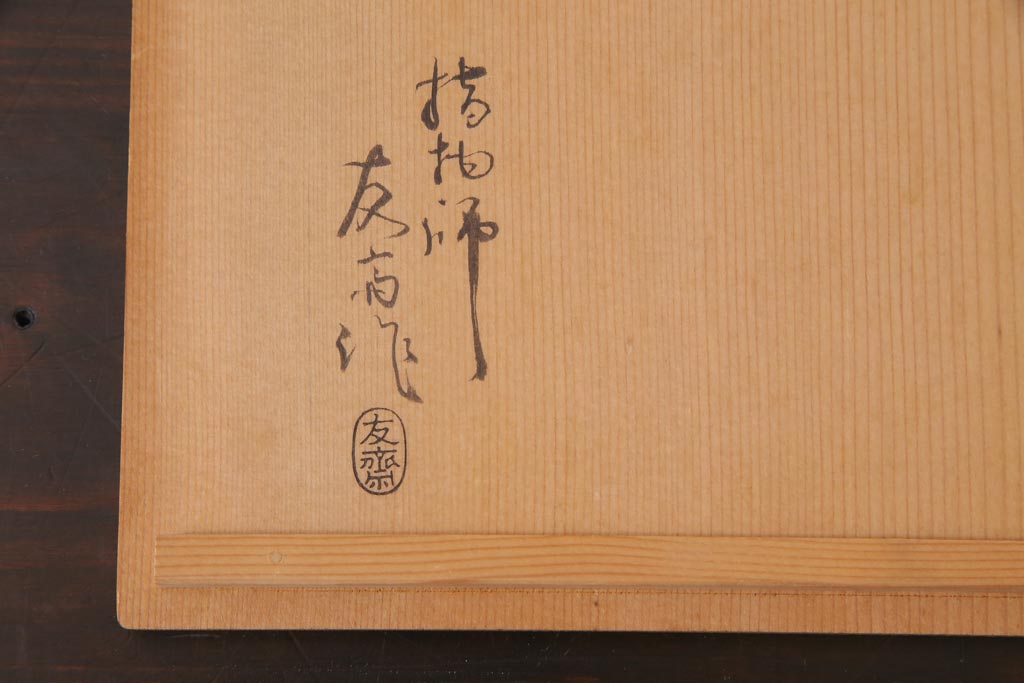 指物師
友斎作
友齋